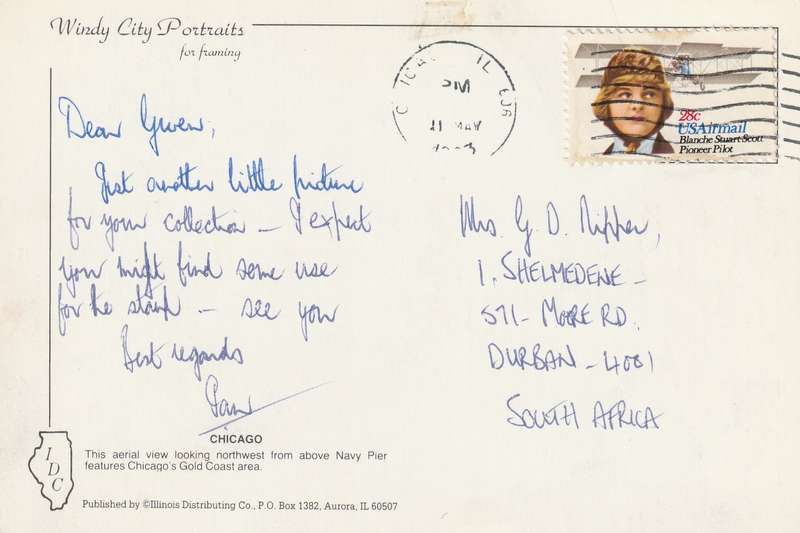 Windy City Portraits
for framing
IL 606
PM
21 MAY
28c
USAirmail
Blanche Stuart Scott
Pioneer Pilot
Dear Gwen,
Just another little picture
for your collection – I expect
you might find some use
for the stamp – see you
Best regards
Mrs. G. D. Nipper,
1, SHELMEDENE –
571 – MOORE RD.
DURBAN – 4001
SOUTH AFRICA
CHICAGO
This aerial view looking northwest from above Navy Pier
features Chicago's Gold Coast area.
IDC
Published by ©Illinois Distributing Co., P.O. Box 1382, Aurora, IL 60507